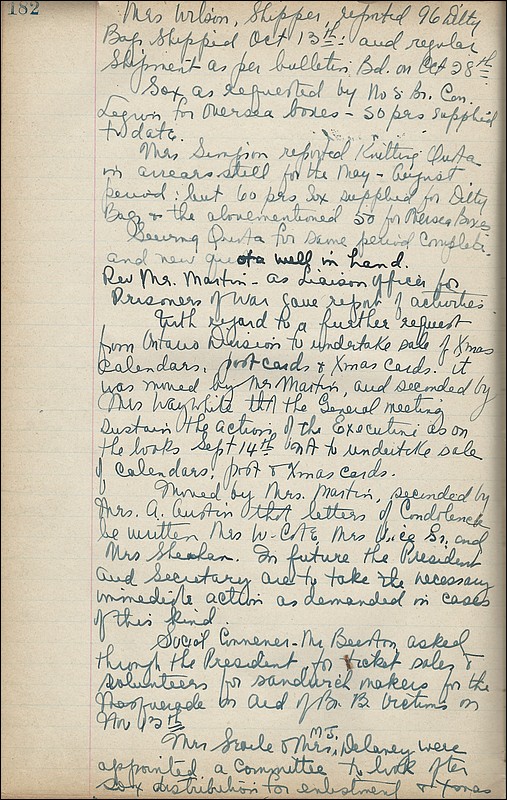 182
Mrs Wilson, Shipper, reported 96 Ditty
Bags Shipped Oct 13th: and regular
Shipment as per bulletin Bd. on Oct 28th
Sox as requested by No 8 Br. Can.
Legion for oversea boxes - 50 prs supplied
to date.
Mrs Simpson reported Knitting Quota
in arrears still for the May - August
period: but 60 prs Sox supplied for Ditty
Bags & the abovementioned 50 for Oversea Boxes
Sewing Quota for same period complete.
and new quota well in hand.
Rev Mr. Martin - as Liaison officer for
Prisoners of War gave report of activities
With regard to a further request
from Ontario Division to undertake sale of Xmas
Calendars, post cards & Xmas cards. it
was moved by Mr Martin, and seconded by
Mrs Waywhite tht the General meeting
sustain the action of the Executive as on
the books Sept 14th not to undertake sale
of Calendars, post & Xmas cards.
Moved by Mrs. Martin, seconded by
Mrs. A. Austin that letters of Condolence
be written Mrs W. Coté, Mrs Vice Sr. and
Mrs Sheehan. In future the President
and Secretary are to take the necessary
immediate action as demanded in cases
of this kind.
Social Convener - Mrs Beeston asked
through the President for ticket sales &
volunteers for sandwich makers for the
Masquerade in Aid of Br. B. Victims on
Nov 13th
Mrs Searle & Mrs. M.J. Delaney were
appointed a Committee to look after
Sox distribution for enlistment & Xmas